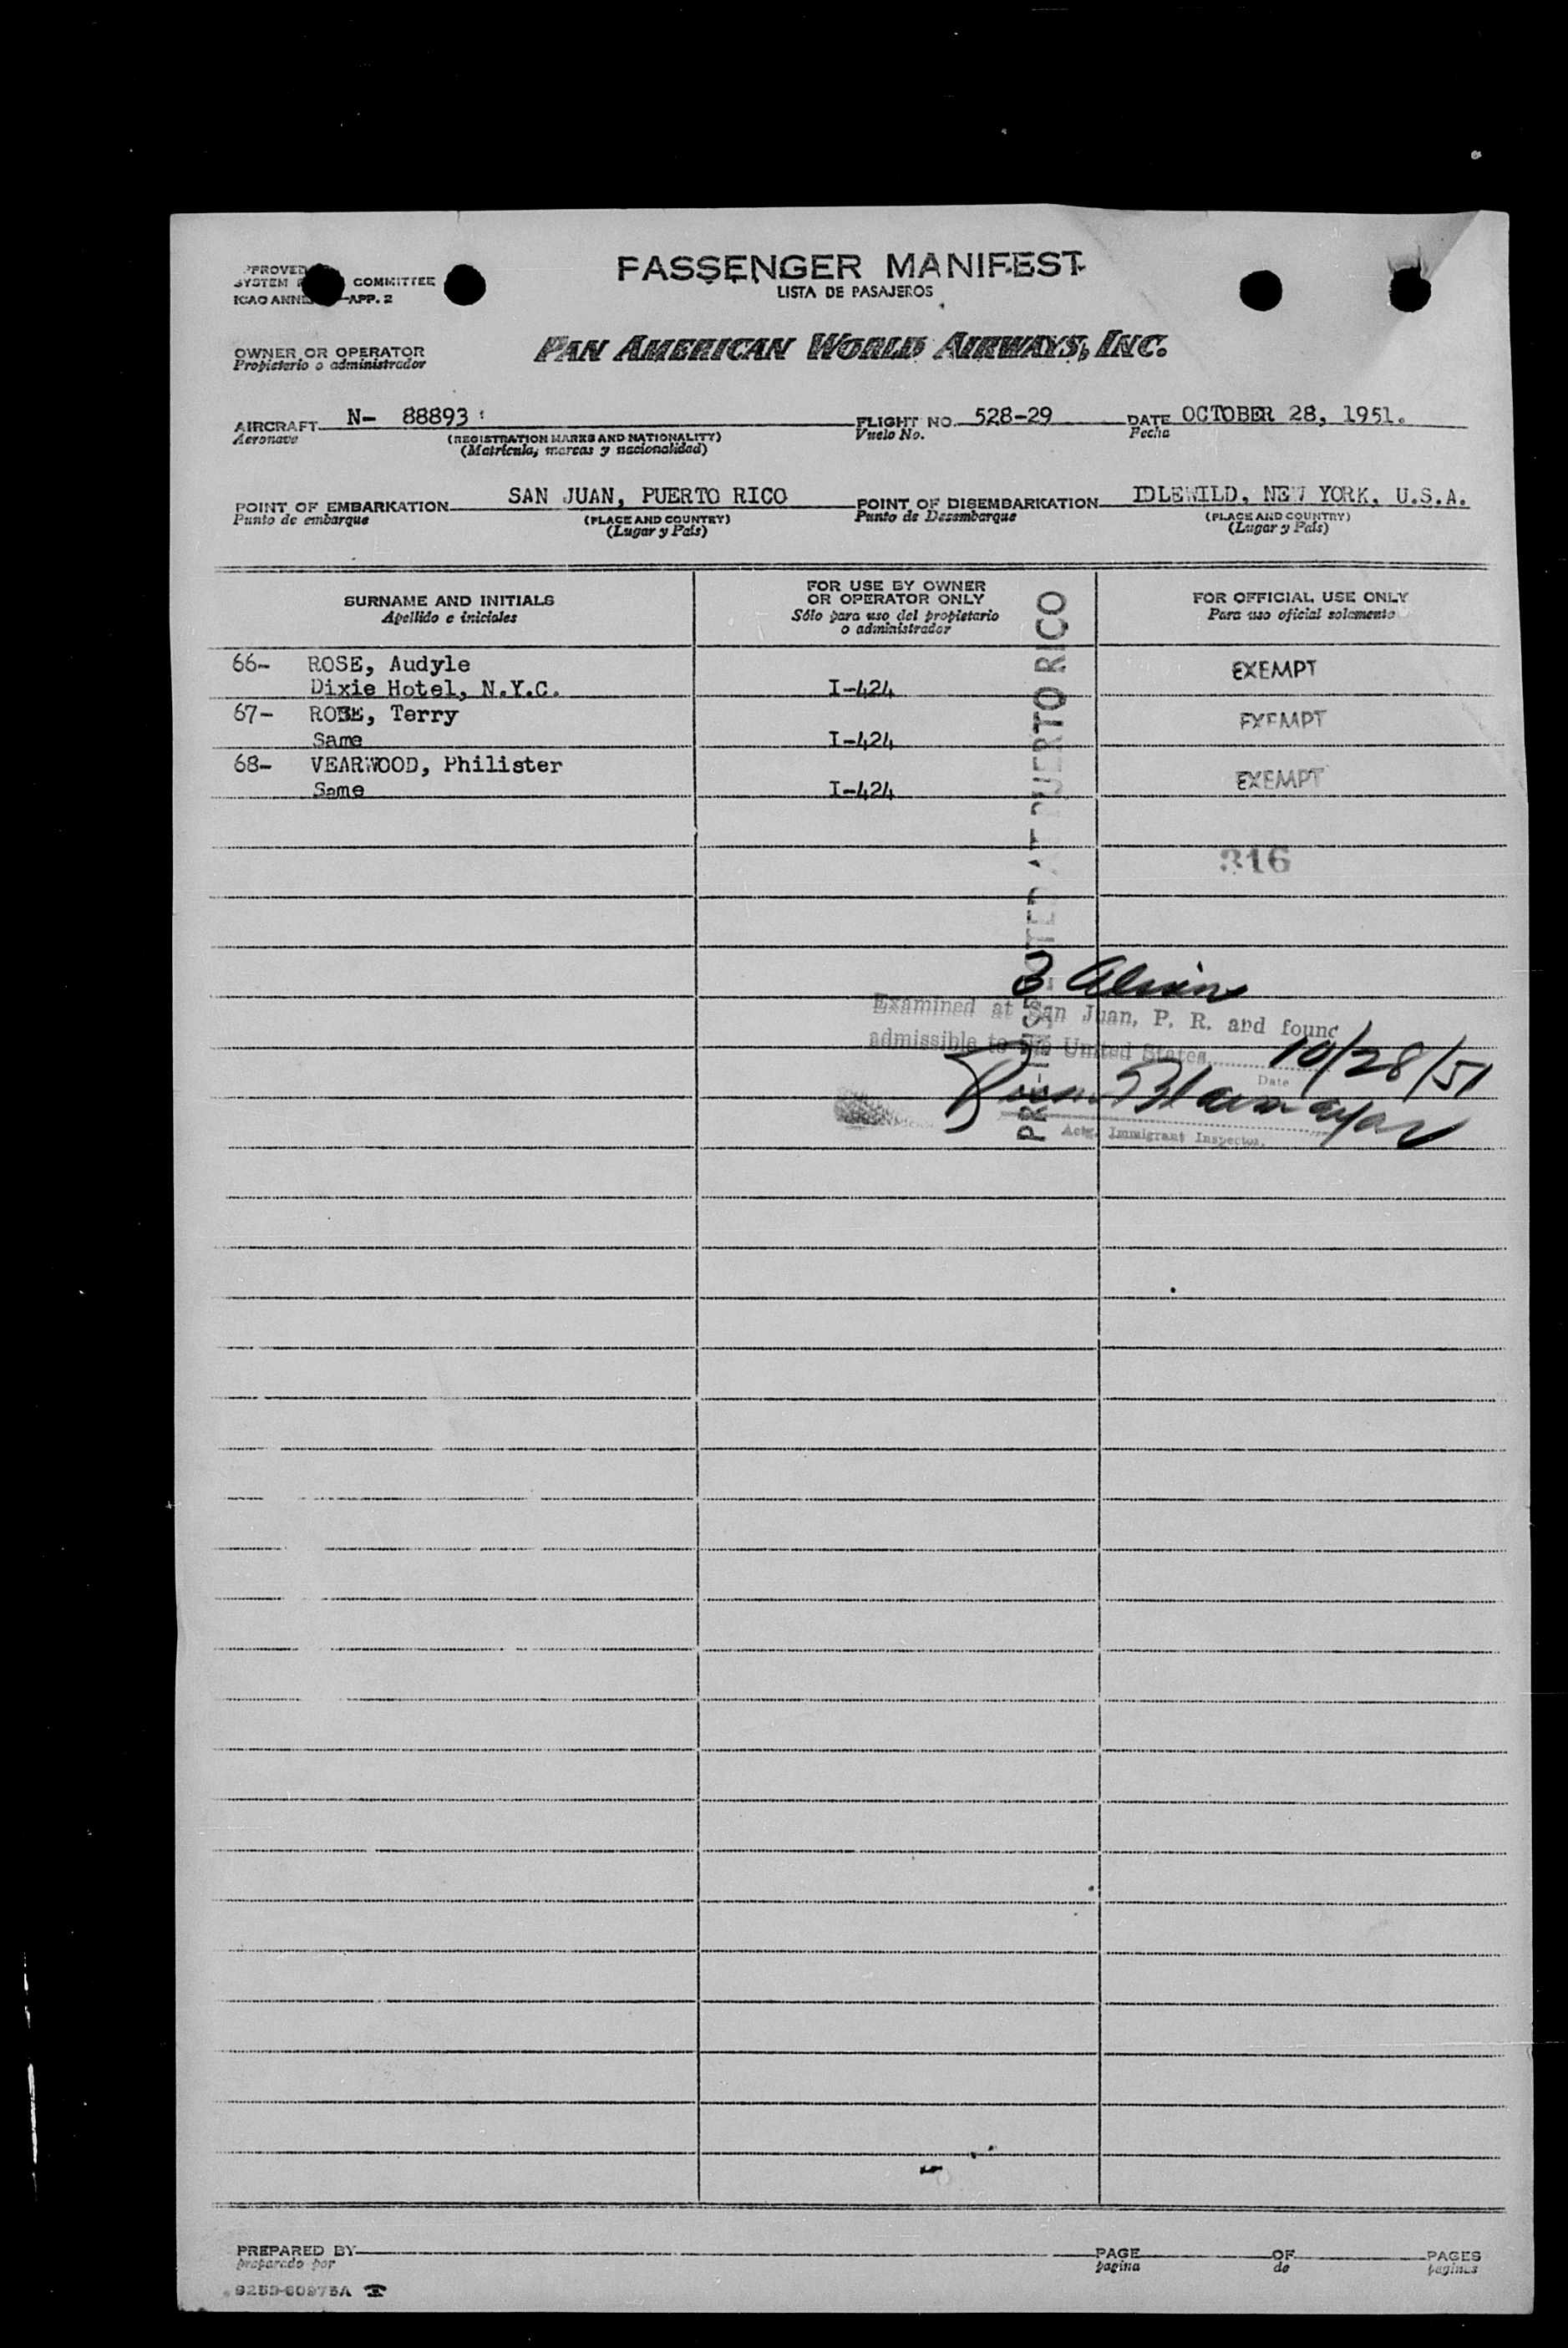 PASSENGER MANIFEST
LISTA DE PASAJEROS
COMMITTEE
SYSTEM
ICAO APP. 2
PAN AMERICAN WORLD AIRWAYS, INC.
OWNER OR OPERATOR
Propietario o administrador
AIRCRAFT N- 88893 FLIGHT NO. 528-29 DATE OCTOBER 28, 1951.
Aeronave (REGISTRATION MARKS AND NATIONALITY) Vuelo No. Fecha
(Matricula, marcas y nacionalidad)
POINT OF EMBARKATION SAN JUAN, PUERTO RICO POINT OF DISEMBARKATION IDLEWILD, NEW YORK, U.S.A.
Punto de embarque (PLACE AND COUNTRY) Punto de Desembarque (PLACE AND COUNTRY)
(Lugar y País) (Lugar y País)
SURNAME AND INITIALS FOR USE BY OWNER OR OPERATOR ONLY FOR OFFICIAL USE ONLY
Apellido e iniciales Sólo para uso del propietario o administrador Para uso oficial solamente
66- ROSE, Audyle EXEMPT
Dixie Hotel, N.Y.C. I-424
67- ROSE, Terry EXEMPT
Same I-424
68- VEARWOOD, Philister EXEMPT
Same I-424
316
PUERTO RICO
3
Examined at San Juan, P. R. and found
admissible to the United States 10/28/51
Date
Actg. Immigrant Inspector.
PREPARED BY PAGE OF PAGES
preparado por pagina de paginas